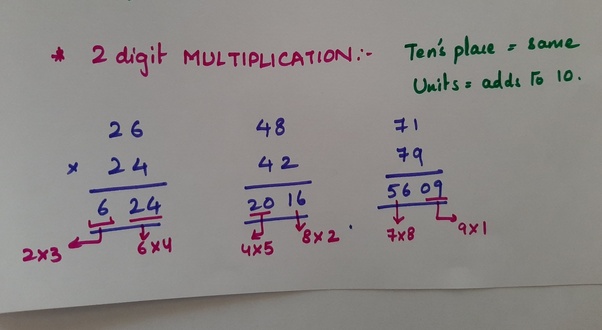 * 2 digit MULTIPLICATION:-
Ten's place = same
Units = adds to 10.
26 48 71
× 24 42 79
6 24 20 16 56 09
2×3 6×4 4×5 8×2 . 7×8 9×1